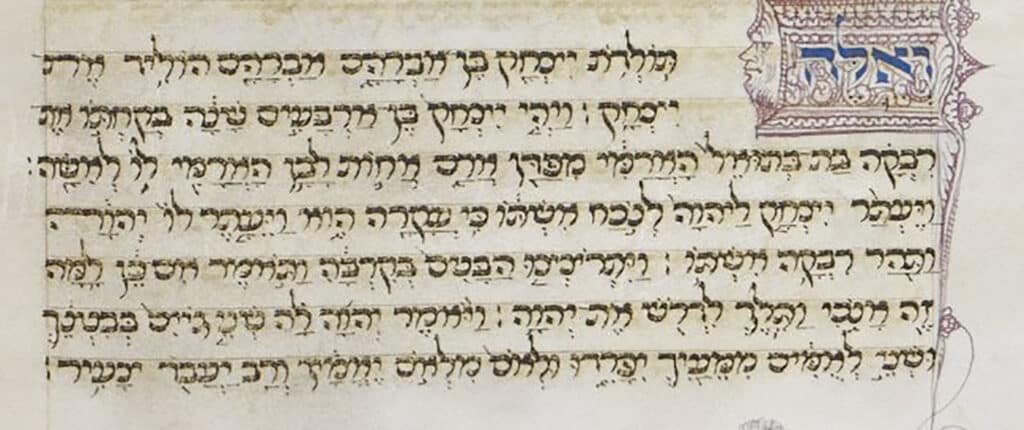 וְאֵלֶּה תּוֹלְדֹת יִצְחָק בֶּן אַבְרָהָם אַבְרָהָם הוֹלִיד אֶת
יִצְחָק : וַיְהִי יִצְחָק בֶּן אַרְבָּעִים שָׁנָה בְּקַחְתּוֹ אֶת
רִבְקָה בַּת בְּתוּאֵל הָאֲרַמִּי מִפַּדַּן אֲרָם אֲחוֹת לָבָן הָאֲרַמִּי לוֹ לְאִשָּׁה :
וַיֶּעְתַּר יִצְחָק לַיהוָה לְנֹכַח אִשְׁתּוֹ כִּי עֲקָרָה הִוא וַיֵּעָתֶר לוֹ יְהוָה
וַתַּהַר רִבְקָה אִשְׁתּוֹ : וַיִּתְרֹצְצוּ הַבָּנִים בְּקִרְבָּהּ וַתֹּאמֶר אִם כֵּן לָמָּה
זֶּה אָנֹכִי וַתֵּלֶךְ לִדְרֹשׁ אֶת יְהוָה : וַיֹּאמֶר יְהוָה לָהּ שְׁנֵי גֹיִים בְּבִטְנֵךְ
וּשְׁנֵי לְאֻמִּים מִמֵּעַיִךְ יִפָּרֵדוּ וּלְאֹם מִלְאֹם יֶאֱמָץ וְרַב יַעֲבֹד צָעִיר :